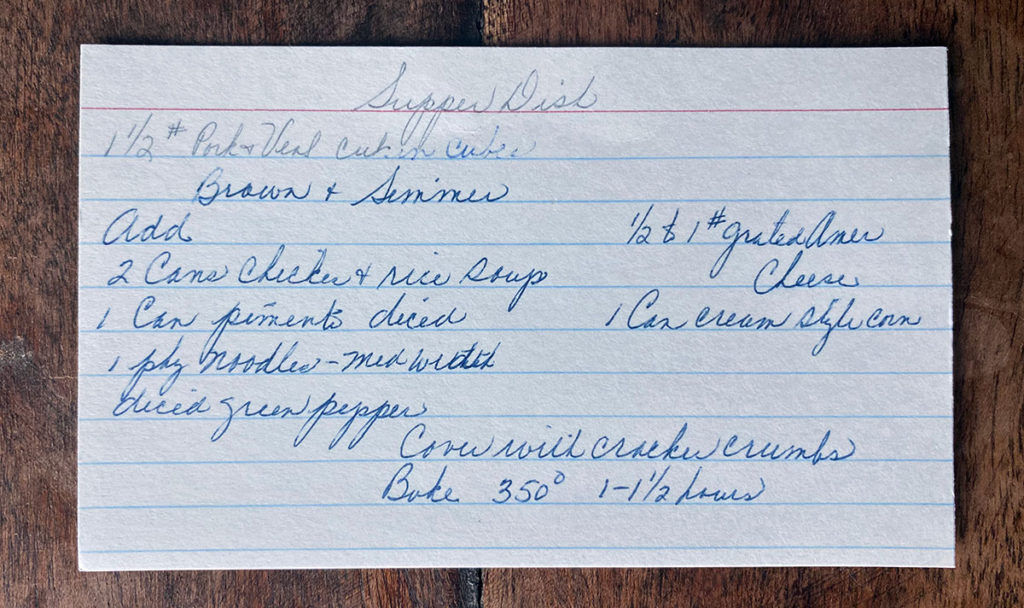 Supper Dish
1 1/2 # Pork & Veal cut in cubes
Brown & Simmer
Add
1/2 to 1 # grated Amer
2 Cans Chicken & rice soup
Cheese
1 Can pimento diced
1 Can cream style corn
1 pkg noodles - med width
diced green pepper
Cover with cracker crumbs
Bake 350° 1-1 1/2 hours